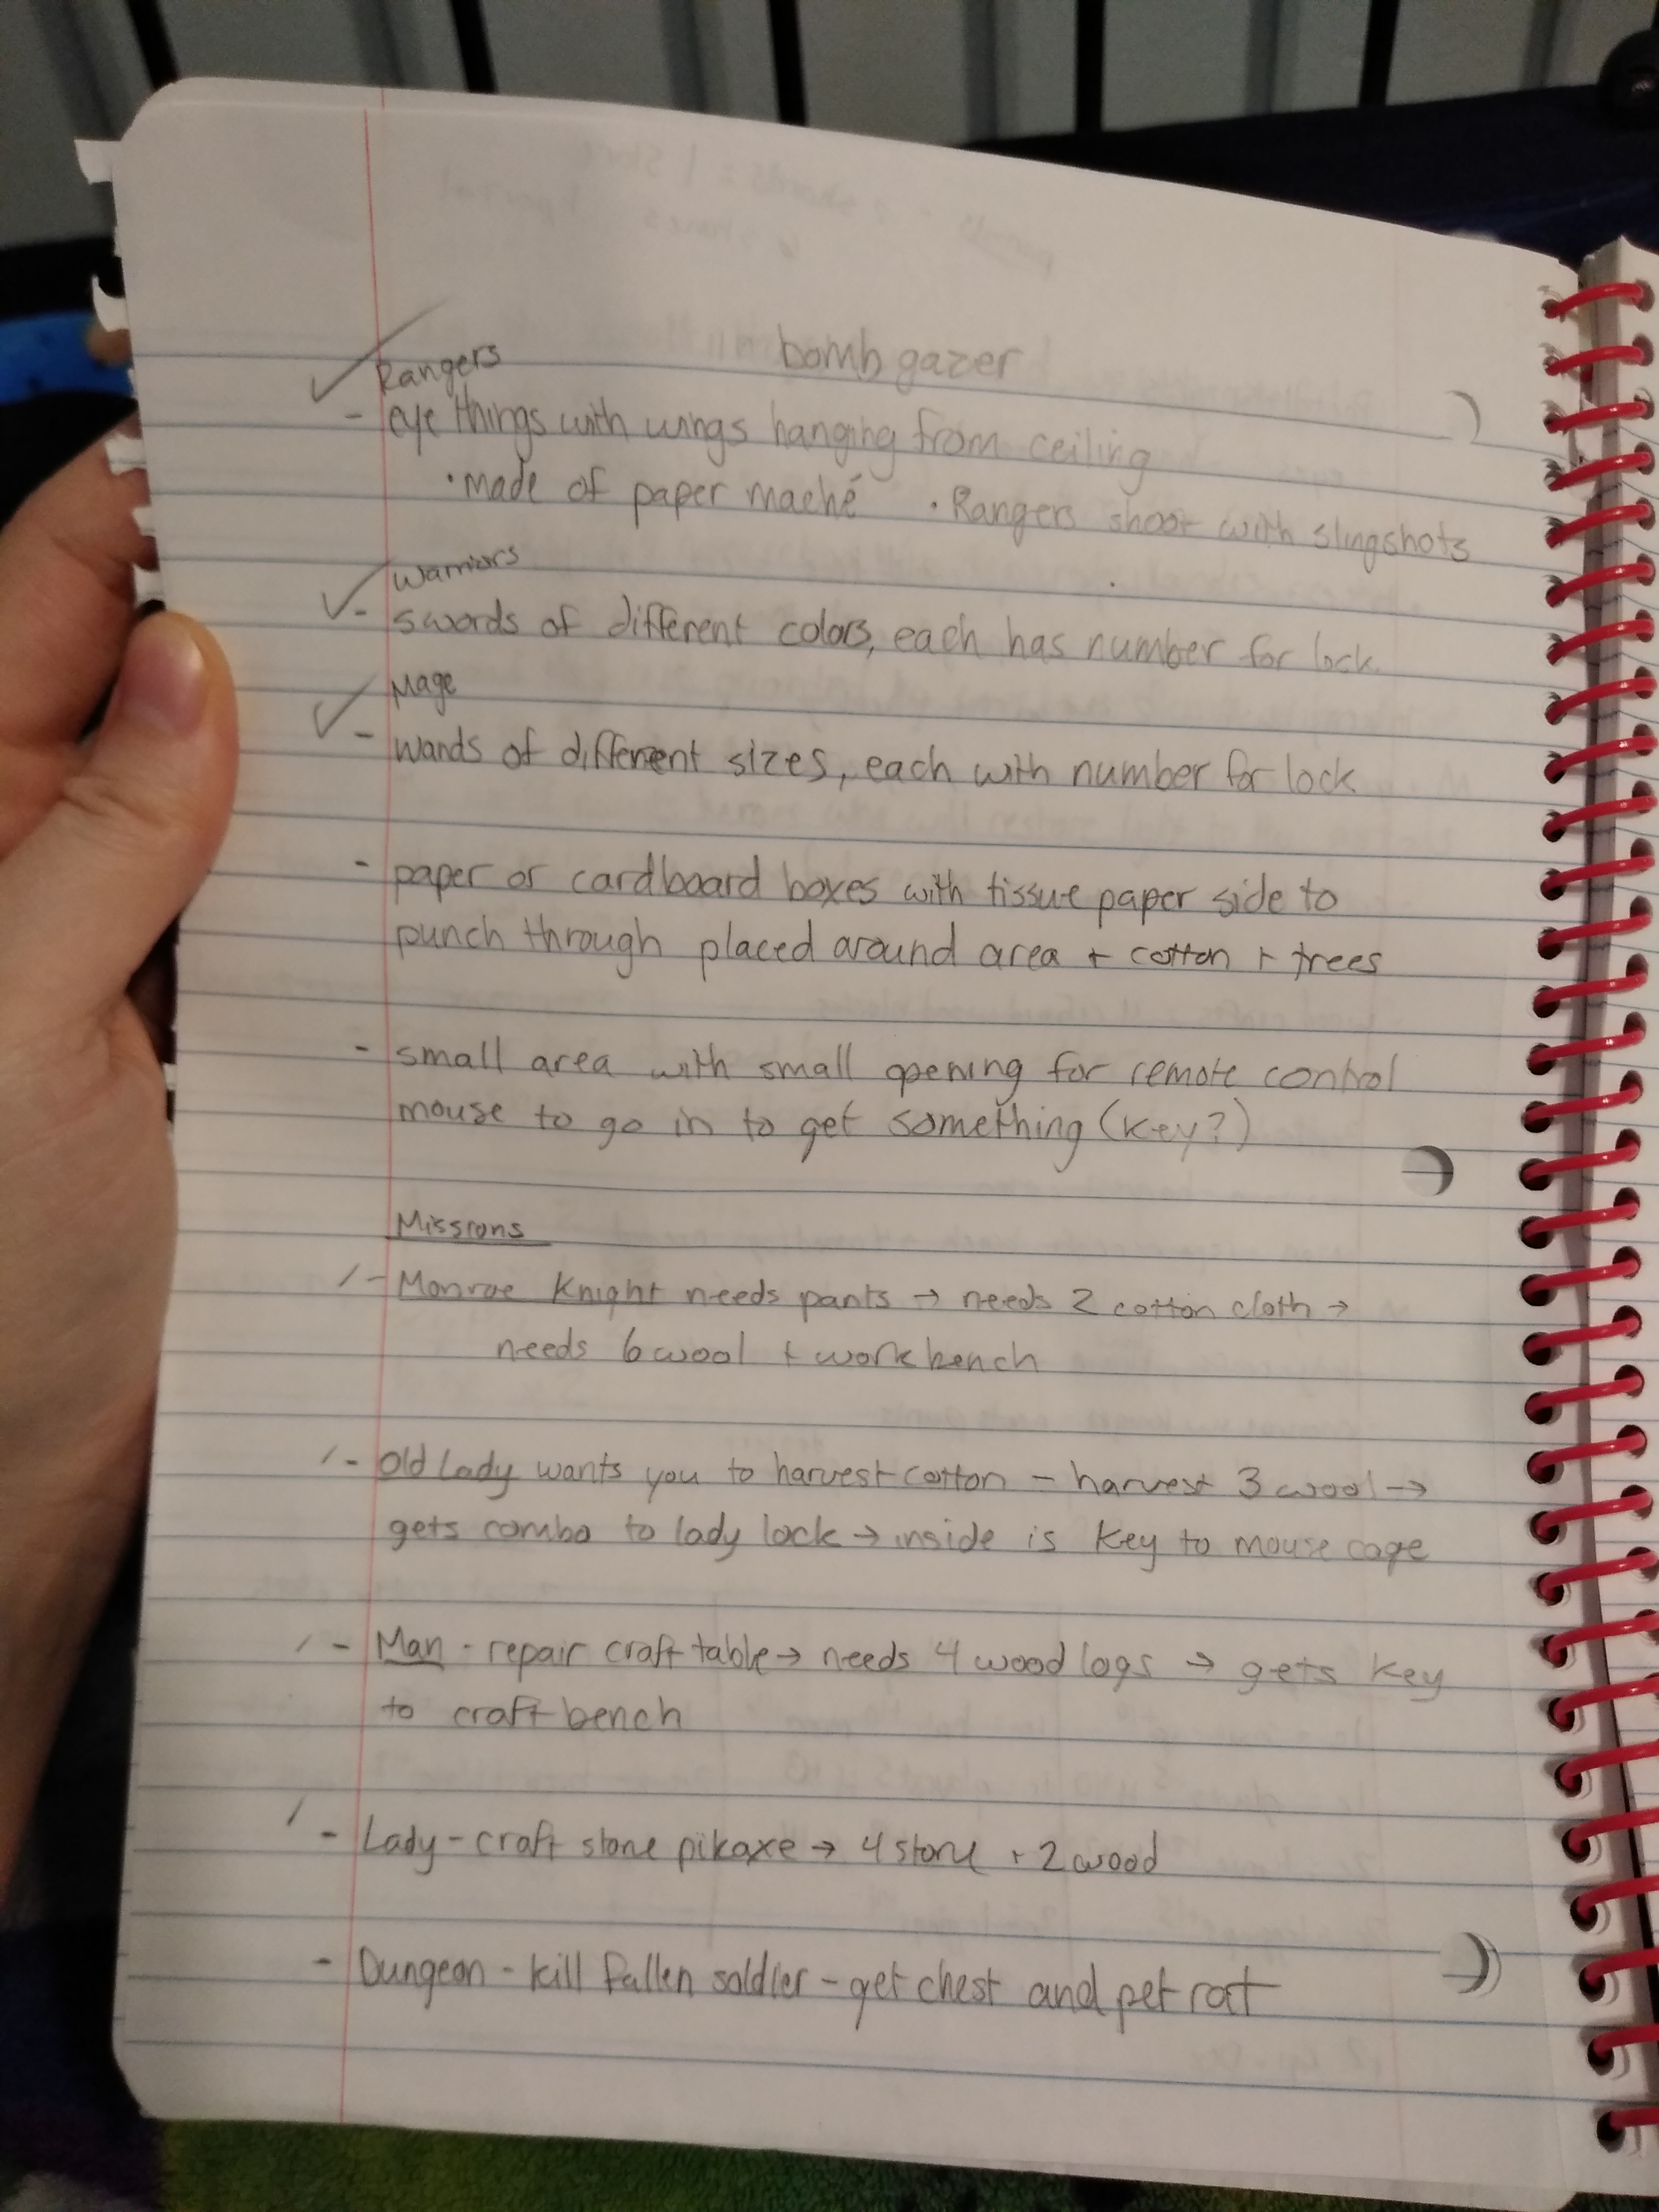 bomb gazer
Rangers
- eye things with wings hanging from ceiling
· made of paper maché · Rangers shoot with slingshots
Warriors
- swords of different colors, each has number for lock
Mage
- wands of different sizes, each with number for lock
- paper or cardboard boxes with tissue paper side to
punch through placed around area + cotton + trees
- small area with small opening for remote control
mouse to go in to get something (key?)
Missions
- Monroe Knight needs pants → needs 2 cotton cloth →
needs 6 wool + workbench
- Old Lady wants you to harvest cotton - harvest 3 wool →
gets combo to lady lock → inside is key to mouse cage
- Man - repair craft table → needs 4 wood logs → gets key
to craft bench
- Lady - craft stone pikaxe → 4 stone + 2 wood
- Dungeon - kill fallen soldier - get chest and pet rat